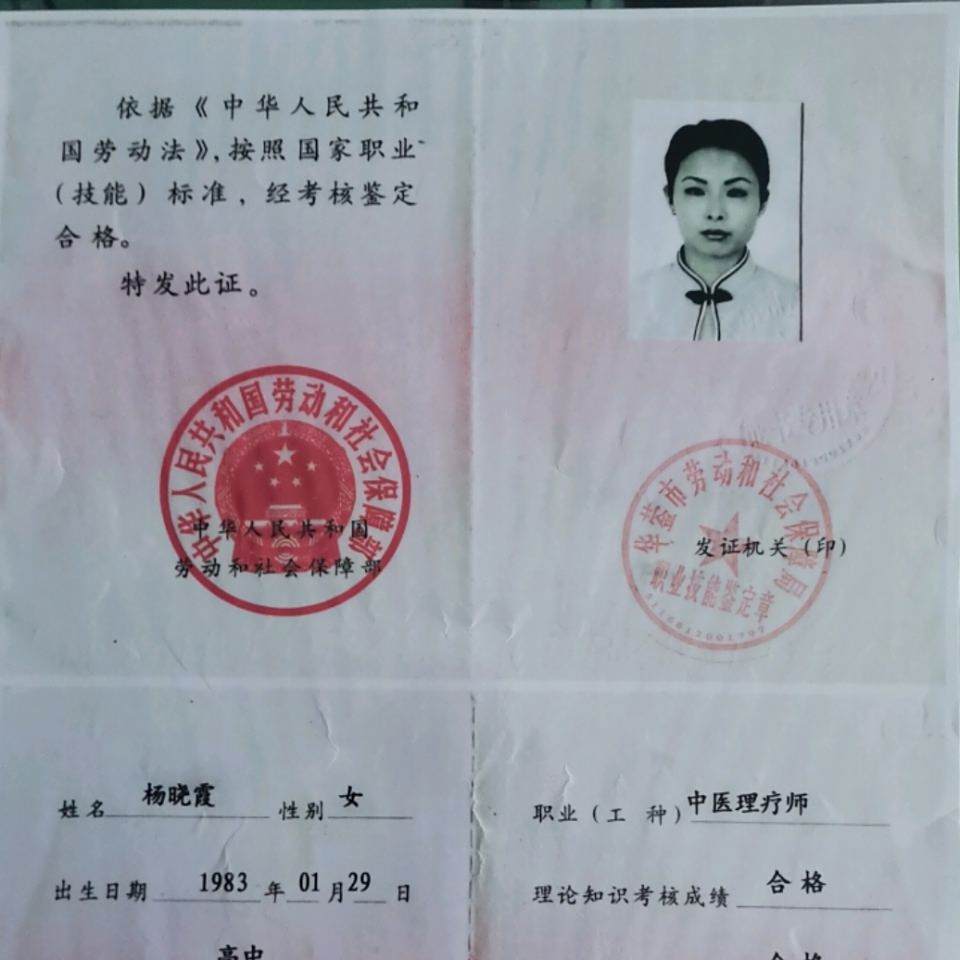 依据《中华人民共和
国劳动法》,按照国家职业
(技能)标准,经考核鉴定
合格。
特发此证。
中华人民共和国劳动和社会保障部
中华人民共和国
劳动和社会保障部
华蓥市劳动和社会保障局
发证机关(印)
职业技能鉴定章
姓名 杨晓霞 性别 女
出生日期 1983 年 01 月 29 日
高中
职业(工 种) 中医理疗师
理论知识考核成绩 合格
合格